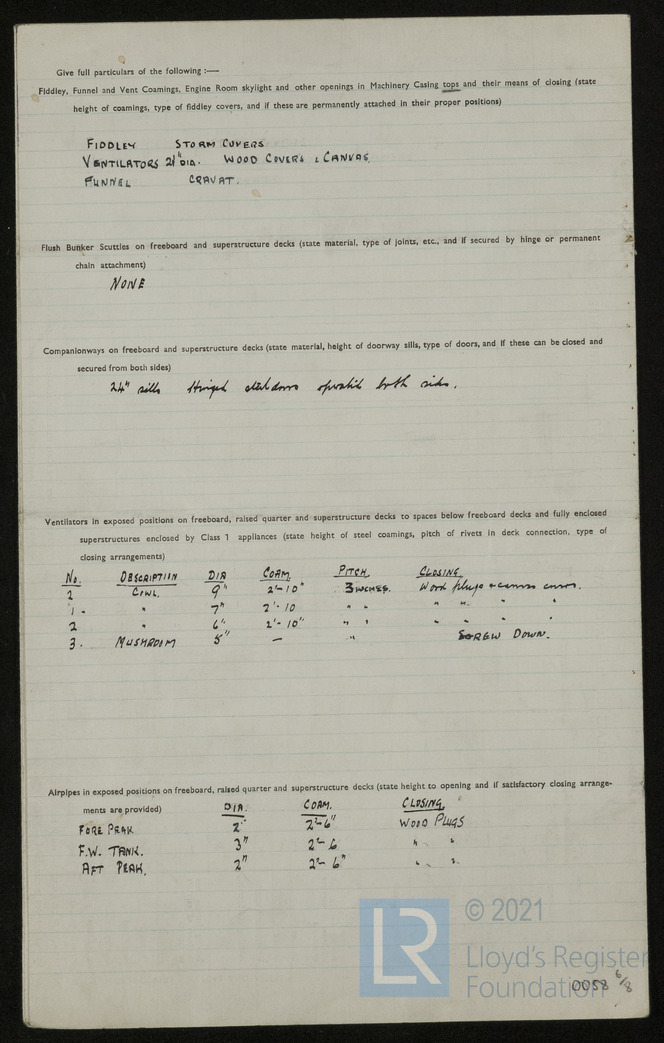 Give full particulars of the following :—
Fiddley, Funnel and Vent Coamings, Engine Room skylight and other openings in Machinery Casing tops and their means of closing (state
height of coamings, type of fiddley covers, and if these are permanently attached in their proper positions)
FIDDLEY STORM COVERS
VENTILATORS 21" DIA. WOOD COVERS & CANVAS.
FUNNEL CRAVAT.
Flush Bunker Scuttles on freeboard and superstructure decks (state material, type of joints, etc., and if secured by hinge or permanent
chain attachment)
NONE
Companionways on freeboard and superstructure decks (state material, height of doorway sills, type of doors, and if these can be closed and
secured from both sides)
24" sills Hinged steel doors operable both sides.
Ventilators in exposed positions on freeboard, raised quarter and superstructure decks to spaces below freeboard decks and fully enclosed
superstructures enclosed by Class 1 appliances (state height of steel coamings, pitch of rivets in deck connection, type of
closing arrangements)
No. DESCRIPTION DIA COAM. PITCH CLOSING.
2 COWL 9" 2'-10" 3 INCHES. Wood plugs & canvas covers.
1 - " 7" 2'-10 " " " " " "
2 " 6" 2'-10" " " " " " "
3. MUSHROOM 5" — " SCREW DOWN.
Airpipes in exposed positions on freeboard, raised quarter and superstructure decks (state height to opening and if satisfactory closing arrange-
ments are provided) DIA. COAM. CLOSING.
FORE PEAK 2" 2'-6" WOOD PLUGS
F.W. TANK. 3" 2'-6 " "
AFT PEAK. 2" 2'-6" " "
LR © 2021
Lloyd's Register
Foundation
0058 6/8